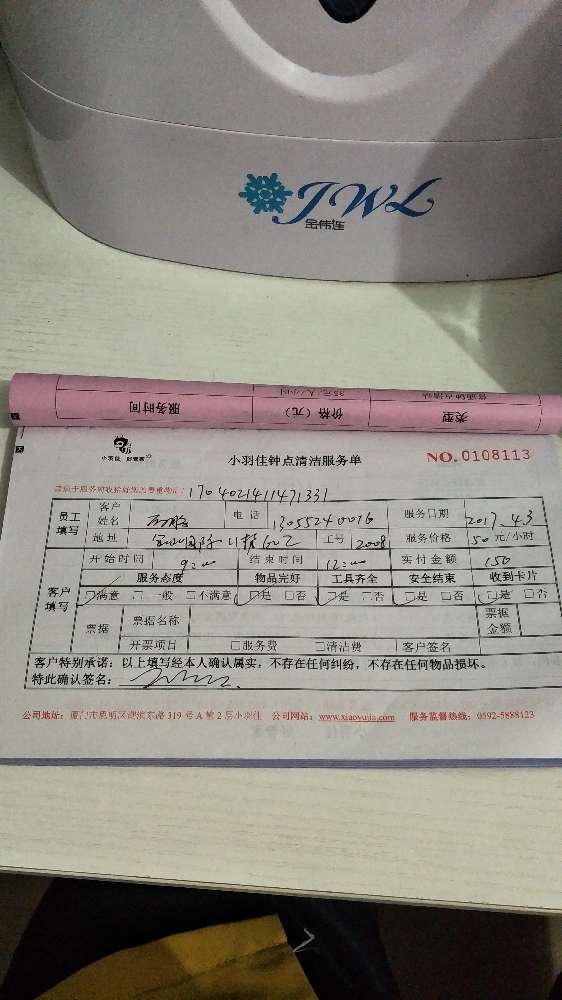 JWL
金伟连
普通钟点清洁
35元/人/小时
类型
价格（元）
服务时间
小羽佳 好管家
小羽佳钟点清洁服务单
NO.0108113
1704021411471331
员工填写 客户姓名 电话 13055240076 服务日期 2017.4.3
地址 工号 2008 服务价格 50元/小时
客户填写 开始时间 9:00 结束时间 12:00 实付金额 150
服务态度 物品完好 工具齐全 安全结束 收到卡片
□满意 □一般 □不满意 □是 □否 □是 □否 □是 □否 □是 □否
票据 票据名称 票据金额
开票项目 □服务费 □清洁费 客户签名
客户特别承诺：以上填写经本人确认属实，不存在任何纠纷，不存在任何物品损坏。
特此确认签名：
公司地址：厦门市思明区湖滨东路319号A幢2层小羽佳 公司网站：www.xiaoyujia.com 服务监督热线：0592-5888123